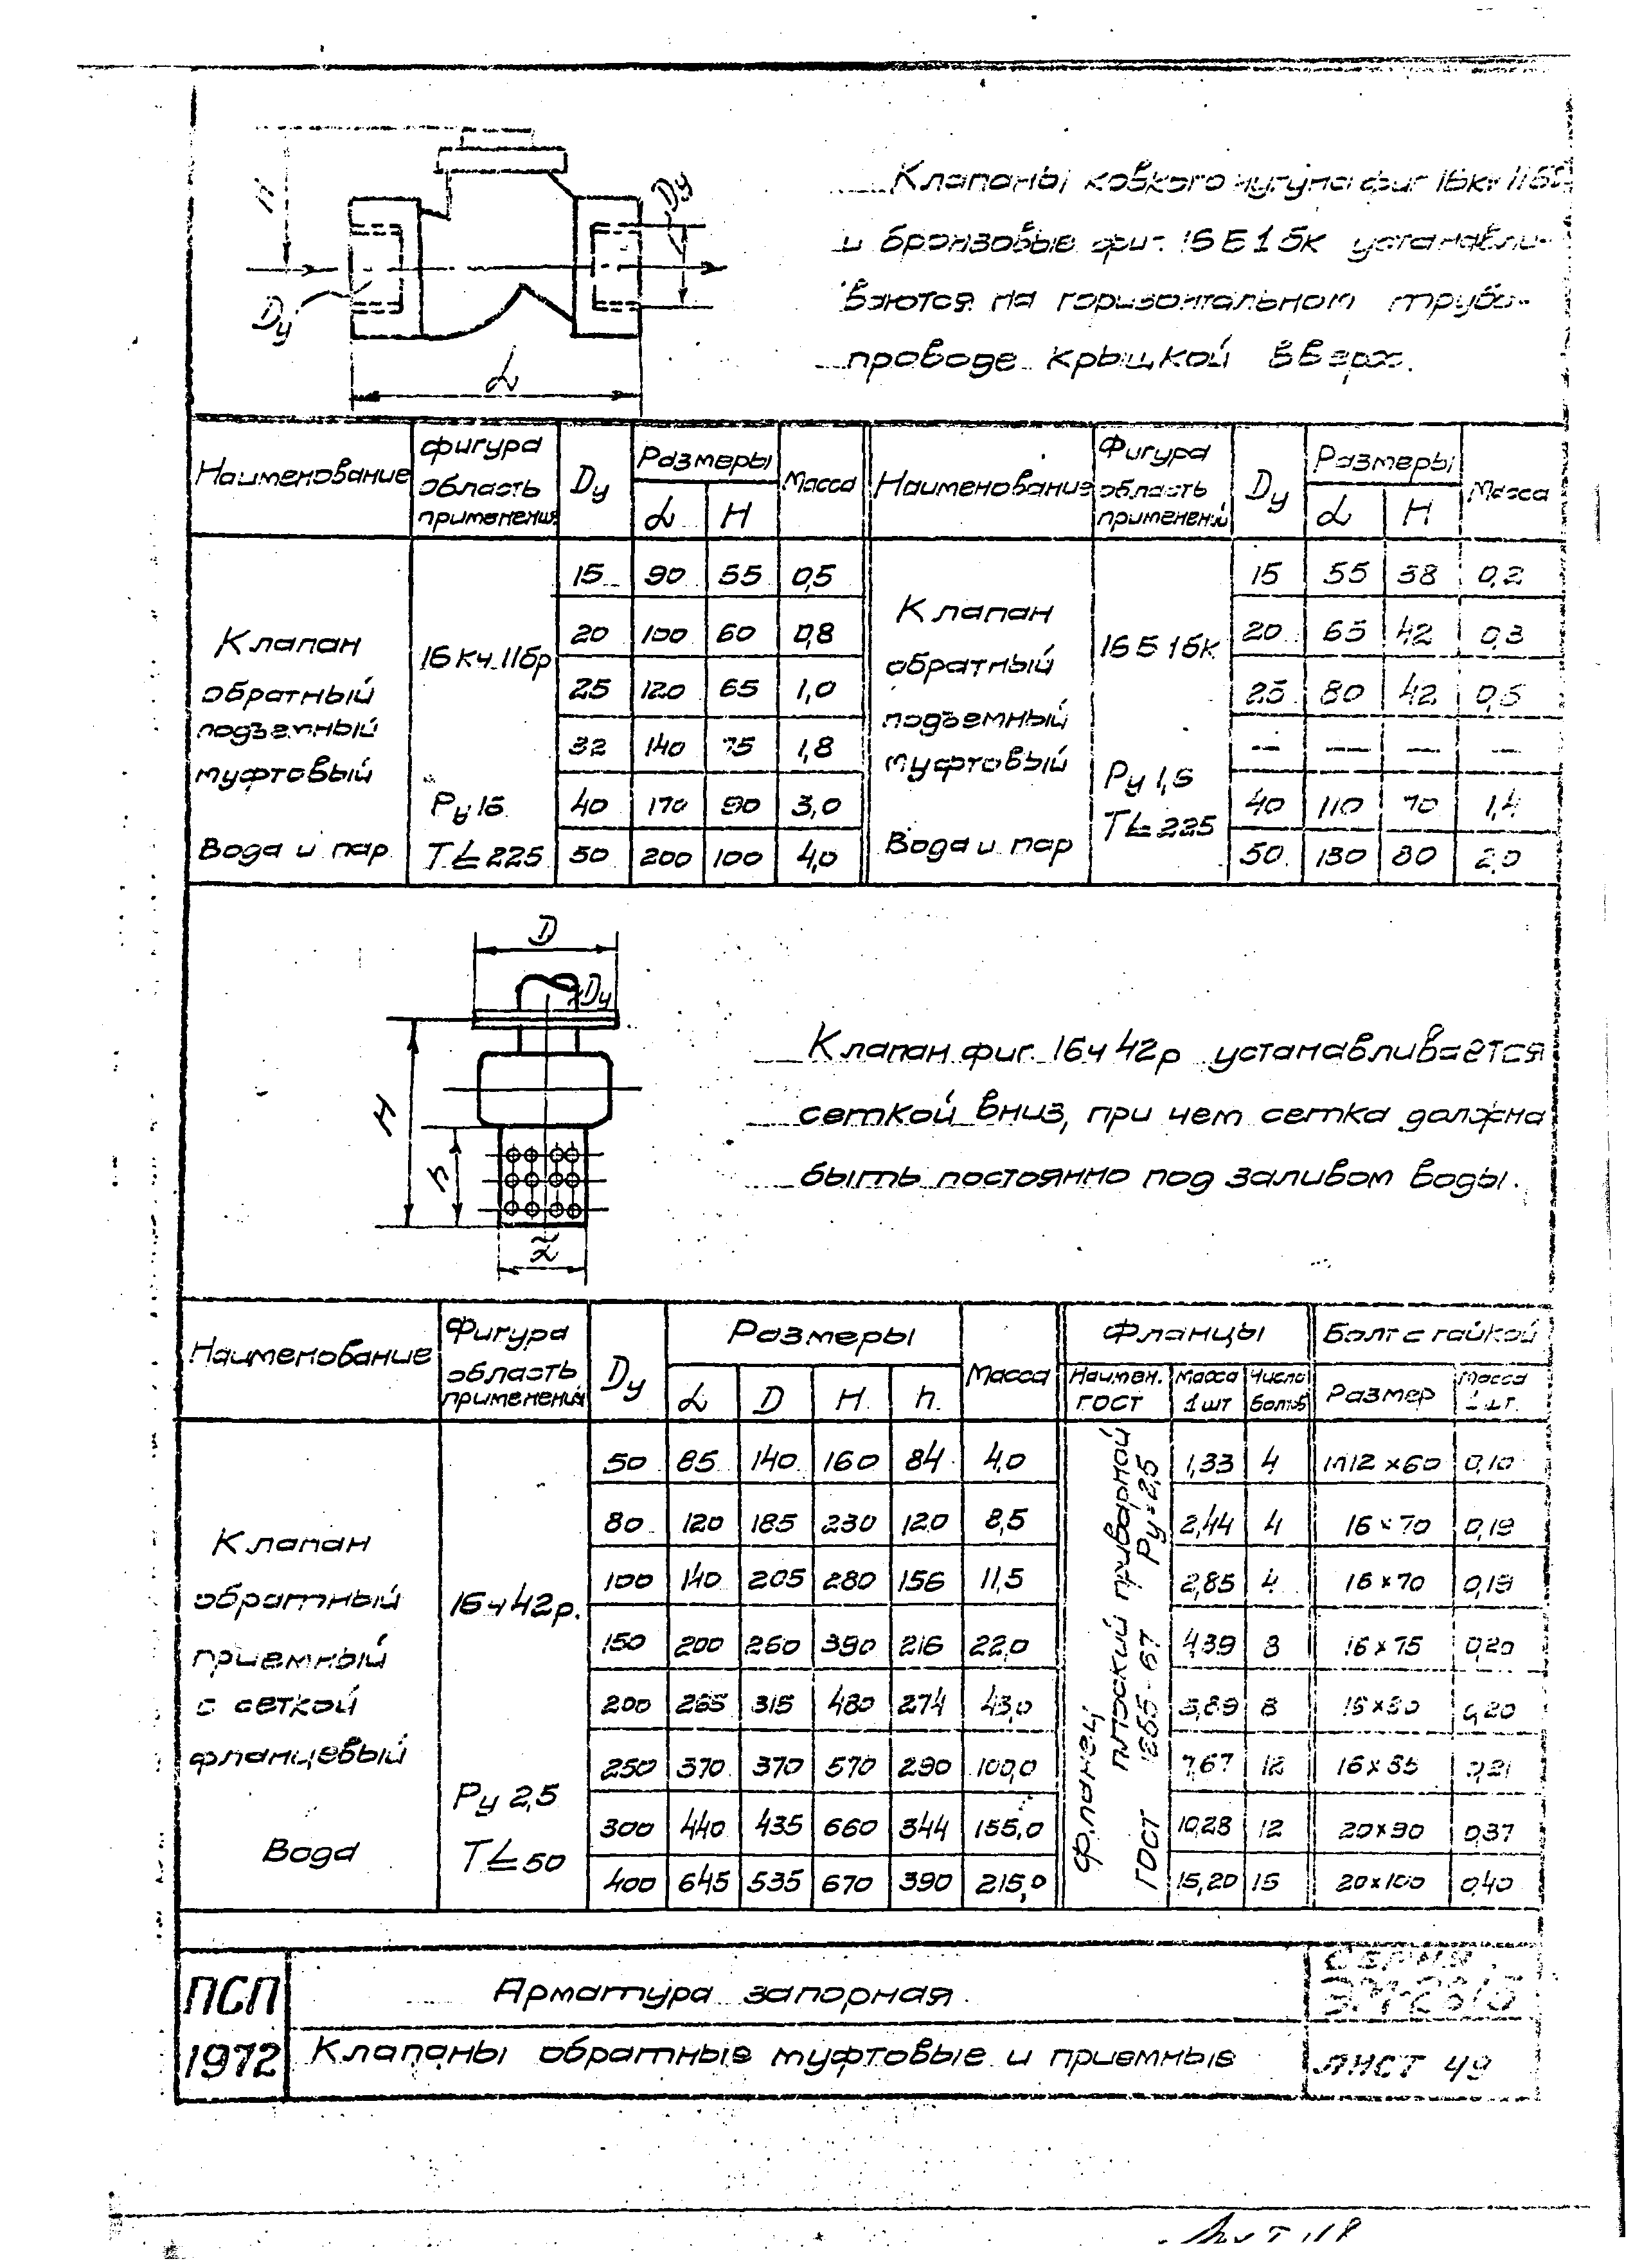 H
Dy
Dy
L
Клапаны ковкого чугуна фиг 16кч 11бр
и бронзовые фиг. 16Б1бк устанавли-
ваются на горизонтальном трубо-
проводе крышкой вверх.
Наименование | Фигура область применения | Dy | Размеры L | H | Масса | Наименование | Фигура область применений | Dy | Размеры L | H | Масса
Клапан обратный подъемный муфтовый Вода и пар | 16кч 11бр Ру 16 T≤225 | Клапан обратный подъемный муфтовый Вода и пар | 16Б1бк Ру 1,6 T≤225
15 | 90 | 55 | 0,5 | 15 | 55 | 38 | 0,2
20 | 100 | 60 | 0,8 | 20 | 65 | 42 | 0,3
25 | 120 | 65 | 1,0 | 25 | 80 | 42 | 0,5
32 | 140 | 75 | 1,8 | — | — | — | —
40 | 170 | 90 | 3,0 | 40 | 110 | 70 | 1,4
50 | 200 | 100 | 4,0 | 50 | 130 | 80 | 2,0
D
Dy
H
h
L
Клапан фиг. 16ч42р устанавливается
сеткой вниз, при чем сетка должна
быть постоянно под заливом воды.
Наименование | Фигура область применения | Dy | Размеры L | D | H | h | Масса | Фланцы Наимен. ГОСТ | Масса 1 шт | Число болтов | Болт с гайкой Размер | Масса 1 шт.
Клапан обратный приемный с сеткой фланцевый Вода | 16ч42р. Ру 2,5 T≤50 | Фланец плоский приварной Ру=2,5 ГОСТ 1255-67
50 | 85 | 140 | 160 | 84 | 4,0 | 1,33 | 4 | М12×60 | 0,10
80 | 120 | 185 | 230 | 120 | 8,5 | 2,44 | 4 | 16×70 | 0,19
100 | 140 | 205 | 280 | 156 | 11,5 | 2,85 | 4 | 16×70 | 0,19
150 | 200 | 260 | 390 | 216 | 22,0 | 4,39 | 8 | 16×75 | 0,20
200 | 265 | 315 | 480 | 274 | 43,0 | 5,89 | 8 | 16×80 | 0,20
250 | 370 | 370 | 570 | 290 | 100,0 | 7,67 | 12 | 16×85 | 0,21
300 | 440 | 435 | 660 | 344 | 155,0 | 10,28 | 12 | 20×90 | 0,37
400 | 645 | 535 | 670 | 390 | 215,0 | 15,20 | 16 | 20×100 | 0,40
ПСП
1972
Арматура запорная
Клапаны обратные муфтовые и приемные
Серия
Лист 49